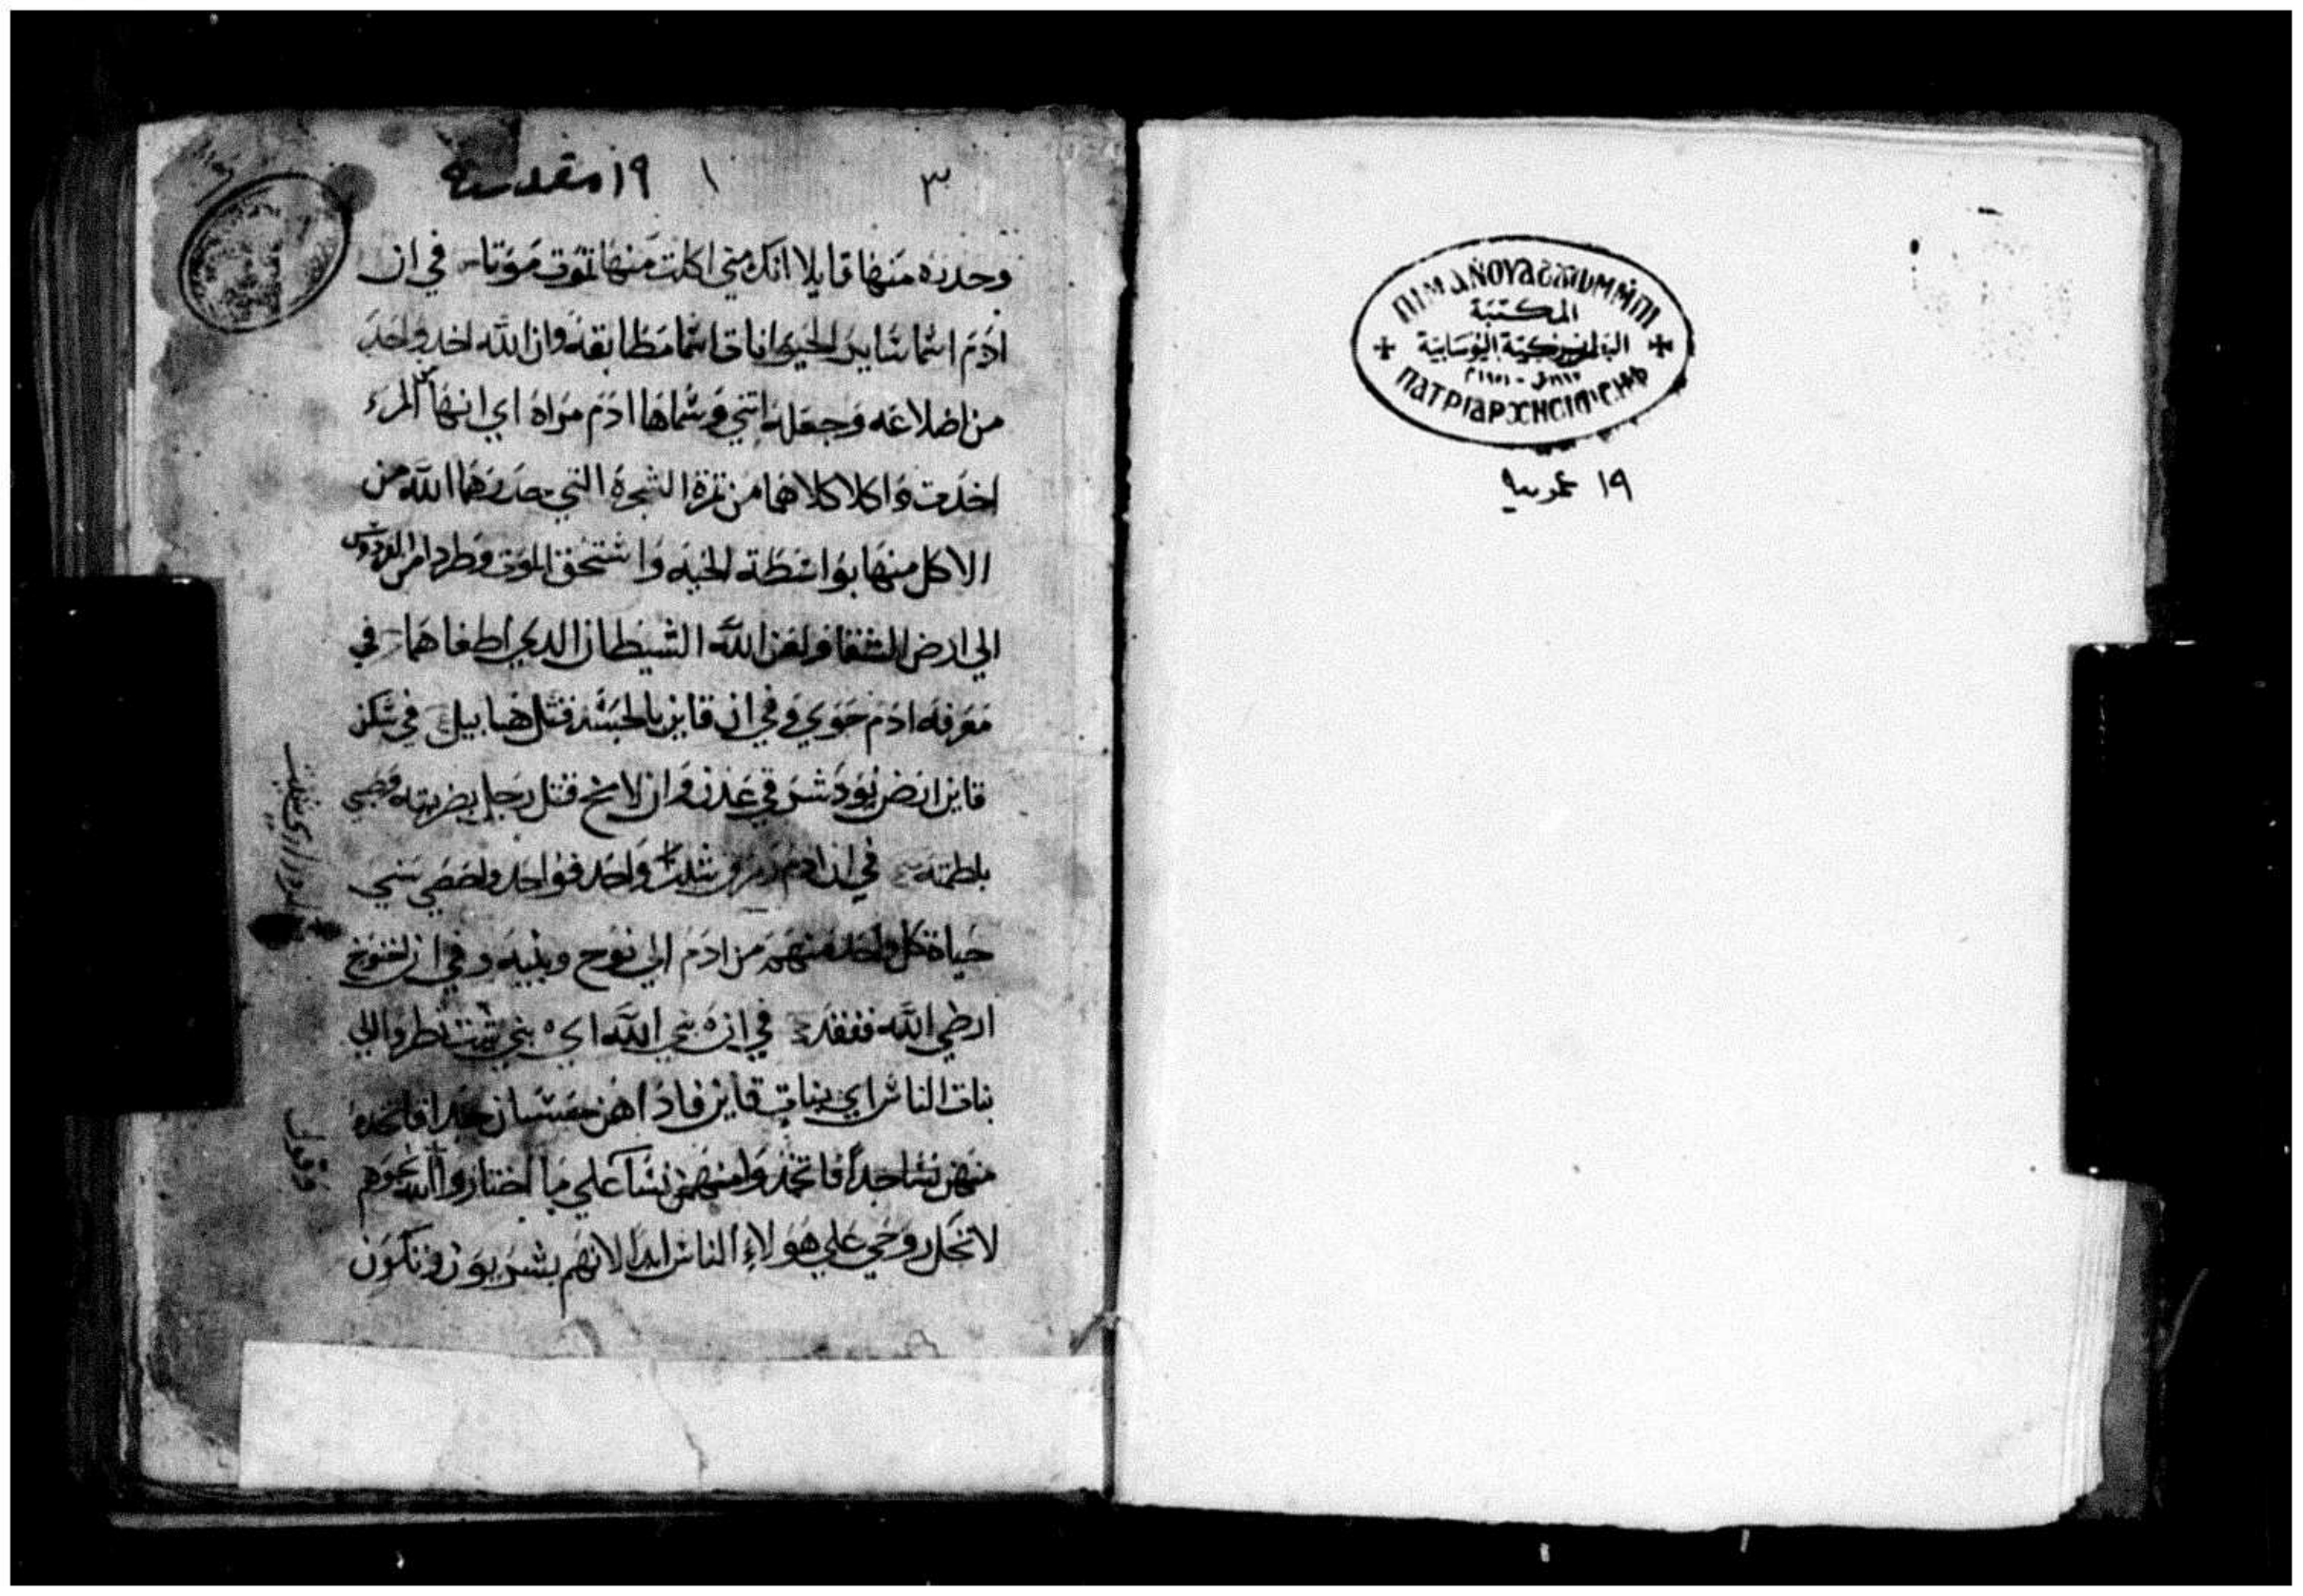 ΠΙΜΑΝΟΥΑϬ
المكتبة
البطريركية اليوسابية
١٩ عمومية
٣
١
١٩ مقدسه
وحدره منها قايلا انك متي اكلت منها تموت موتا في ان
ادم اسما ساير الحيوانات اسما مطابقه وان الله اخد واحد
من اضلاعه وجعله انتي وسماها ادم مراه اي انها من المرء
اخدت واكلا كلاهما من تمرة الشجرة التي حدرهما الله من
الاكل منها بواسطة الحيه واستحق الموت وطردا من الفردوس
الي ارض الشقا ولعن الله الشيطان الدي اطغاهما في
معرفه ادم حوي وفي ان قاين بالحسد قتل هابيل في سكن
قاين ارض نود شرقي عدن وان لامخ قتل رجل بضربته وصبي
بلطمته في ان ادم واحد فواحد واحصي سني
حياة كل واحد منهم من ادم الي نوح وبنيه وفي ان اخنوخ
ارضي الله ففقد في ان بني الله اي بني شيت نظروا الي
بنات الناس اي بنات قاين فادا هن حسان جدا فاتخدو
منهن نسا جدا فاتخدوا منهن نسا علي ما اختاروا
لا تحل روحي علي هولاء الناس ابدا لانهم بشريون وتكون
وقول